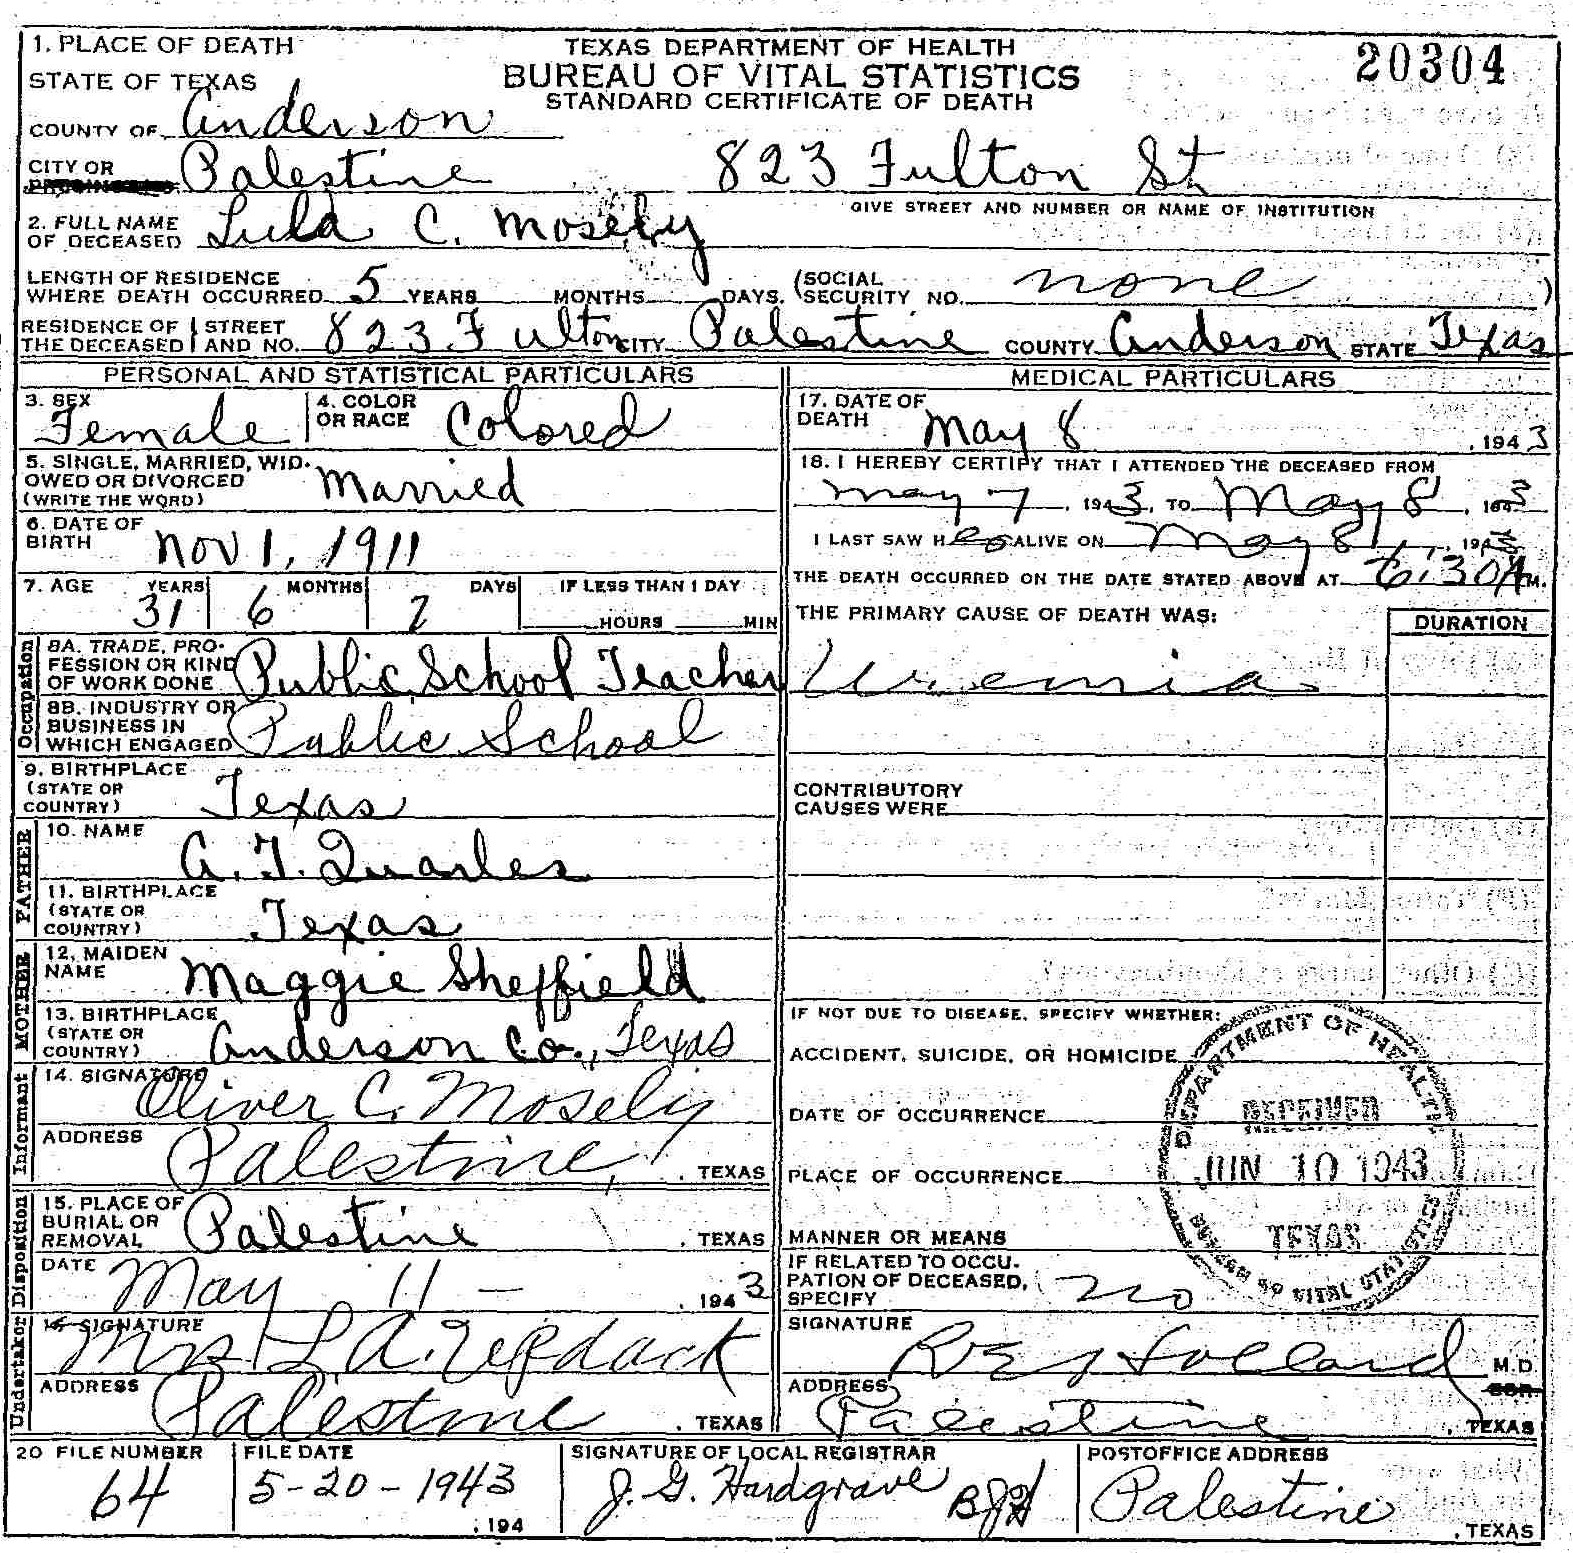 1. PLACE OF DEATH
STATE OF TEXAS
TEXAS DEPARTMENT OF HEALTH
BUREAU OF VITAL STATISTICS
STANDARD CERTIFICATE OF DEATH
20304
COUNTY OF Anderson
CITY OR Palestine 823 Fulton St
GIVE STREET AND NUMBER OR NAME OF INSTITUTION
2. FULL NAME OF DECEASED Lula C. Mosely
LENGTH OF RESIDENCE WHERE DEATH OCCURRED 5 YEARS MONTHS DAYS. (SOCIAL SECURITY NO. none )
RESIDENCE OF THE DECEASED STREET AND NO. 823 Fulton CITY Palestine COUNTY Anderson STATE Texas
PERSONAL AND STATISTICAL PARTICULARS
3. SEX Female
4. COLOR OR RACE Colored
5. SINGLE, MARRIED, WIDOWED OR DIVORCED (WRITE THE WORD) Married
6. DATE OF BIRTH Nov 1, 1911
7. AGE YEARS 31 MONTHS 6 DAYS 7 IF LESS THAN 1 DAY
HOURS MIN
Occupation
8A. TRADE, PROFESSION OR KIND OF WORK DONE Public School Teacher
8B. INDUSTRY OR BUSINESS IN WHICH ENGAGED Public School
9. BIRTHPLACE (STATE OR COUNTRY) Texas
FATHER
10. NAME A. T. Quarles
11. BIRTHPLACE (STATE OR COUNTRY) Texas
MOTHER
12. MAIDEN NAME Maggie Sheffield
13. BIRTHPLACE (STATE OR COUNTRY) Anderson Co., Texas
Informant
14. SIGNATURE Oliver C. Mosely
ADDRESS Palestine, TEXAS
Disposition
15. PLACE OF BURIAL OR REMOVAL Palestine . TEXAS
DATE May 11 - . 1943
Undertaker
16. SIGNATURE Mrs L. A.
ADDRESS Palestine . TEXAS
MEDICAL PARTICULARS
17. DATE OF DEATH May 8 . 1943
18. I HEREBY CERTIFY THAT I ATTENDED THE DECEASED FROM
May 7 . 1943, TO May 8 . 1943
I LAST SAW Her ALIVE ON May 8 , 1943
THE DEATH OCCURRED ON THE DATE STATED ABOVE AT 6:30 A M.
THE PRIMARY CAUSE OF DEATH WAS: DURATION
Uremia
CONTRIBUTORY CAUSES WERE
IF NOT DUE TO DISEASE, SPECIFY WHETHER:
ACCIDENT, SUICIDE, OR HOMICIDE
DATE OF OCCURRENCE
PLACE OF OCCURRENCE
MANNER OR MEANS
DEPARTMENT OF HEALTH
RECEIVED
JUN 10 1943
TEXAS
BUREAU OF VITAL STATISTICS
IF RELATED TO OCCUPATION OF DECEASED, SPECIFY no
SIGNATURE Holland M.D.
ADDRESS Palestine . TEXAS
20 FILE NUMBER 64
FILE DATE 5-20-1943 . 194
SIGNATURE OF LOCAL REGISTRAR J. G. Hardgrave
POSTOFFICE ADDRESS Palestine . TEXAS